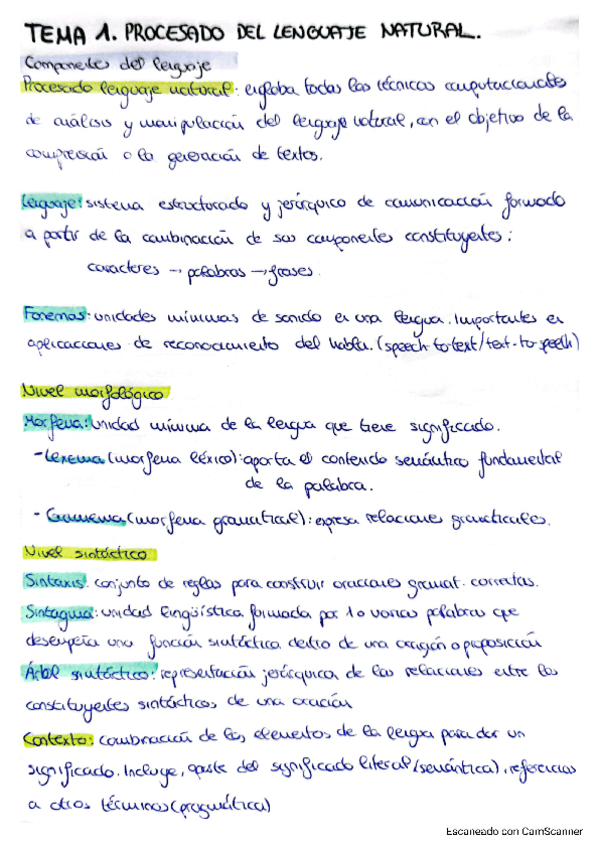 TEMA 1. PROCESADO DEL LENGUAJE NATURAL.
Componentes del lenguaje
Procesado lenguaje natural: engloba todas las técnicas computacionales
de análisis y manipulación del lenguaje natural, con el objetivo de la
compresión o la generación de textos.
Lenguaje: sistema estructurado y jerárquico de comunicación formado
a partir de la combinación de sus componentes constituyentes:
caracteres → palabras → frases.
Fonemas: unidades mínimas de sonido en una lengua. Importantes en
aplicaciones de reconocimiento del habla. (speech-to-text/text-to-speech)
Nivel morfológico
Morfema: Unidad mínima de la lengua que tiene significado.
- Lexema (morfema léxico): aporta el contenido semántico fundamental
de la palabra.
- Gramema (morfema gramatical): expresa relaciones gramaticales.
Nivel sintáctico
Sintaxis: conjunto de reglas para construir oraciones gramat. correctas.
Sintagma: unidad lingüística formada por 1 o varias palabras que
desempeña una función sintáctica dentro de una oración o proposición
Árbol sintáctico: representación jerárquica de las relaciones entre los
constituyentes sintácticos de una oración
Contexto: combinación de los elementos de la lengua para dar un
significado. Incluye, aparte del significado literal (semántica), referencias
a otros términos (pragmática)
Escaneado con CamScanner